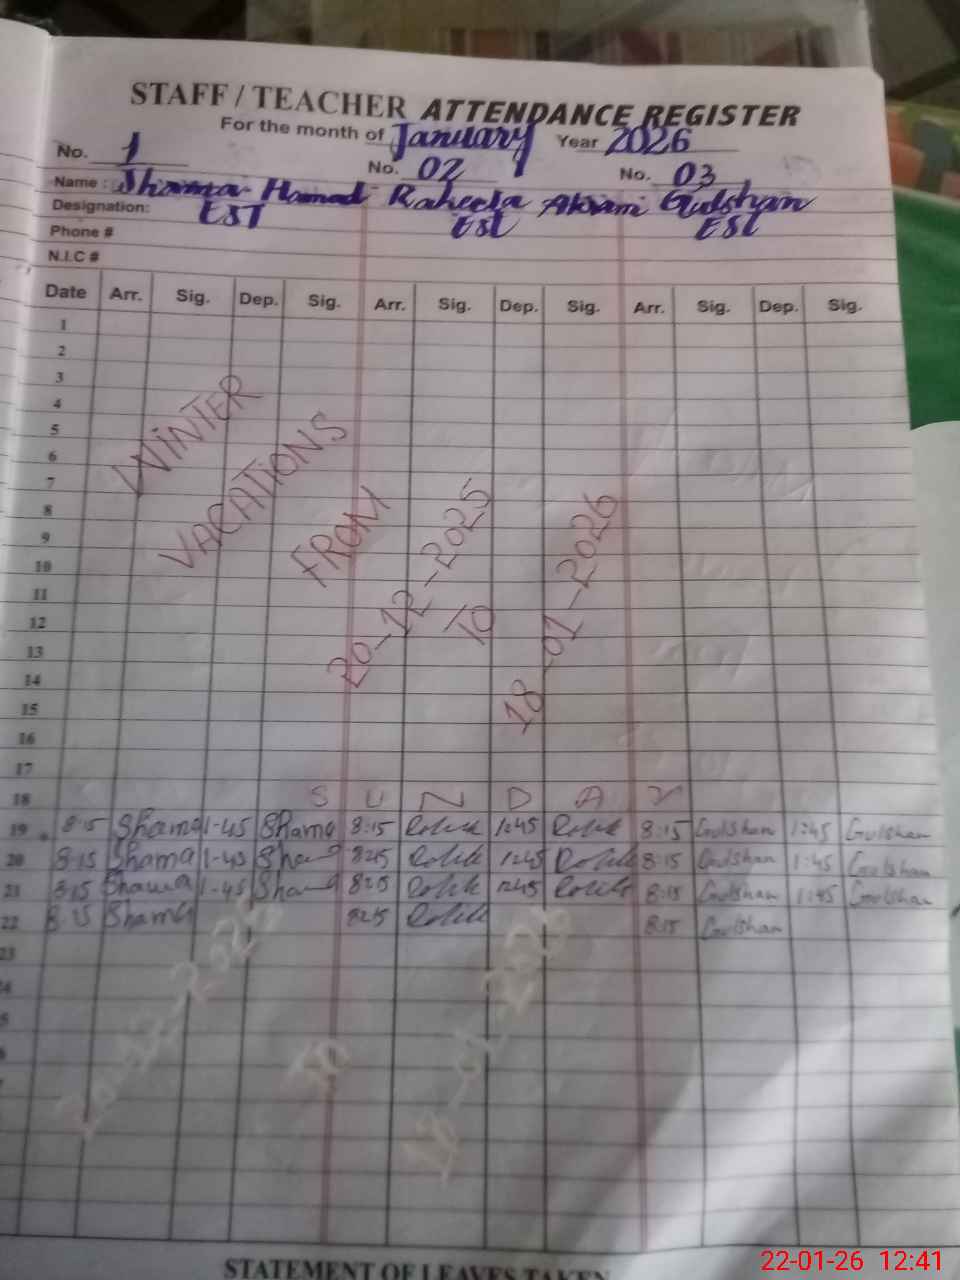 STAFF / TEACHER ATTENDANCE REGISTER
For the month of January Year 2026
No. 1 No. 02 No. 03
Name : Shama Hamad Raheela Akram Gulshan
Designation: EST EST EST
Phone #
N.I.C #
Date Arr. Sig. Dep. Sig. Arr. Sig. Dep. Sig. Arr. Sig. Dep. Sig.
1
2
3
4
5
6
7
8
9
10
11
12
13
14
15
16
17
WINTER
VACATIONS
FROM
20-12-2025
TO
18-01-2026
18 SUNDAY
19 8:15 Shama 1-45 Shama 8:15 1:45 8:15 Gulshan 1:45 Gulshan
20 8:15 Shama 1-45 Shama 8:15 1:45 8:15 Gulshan 1:45 Gulshan
21 8:15 Shama 1-45 Shama 8:15 1:45 8:15 Gulshan 1:45 Gulshan
22 8:15 Shama 8:15 8:15 Gulshan
23
20-12-2025
TO
18-01-2026
STATEMENT OF LEAVES TAKEN
22-01-26 12:41